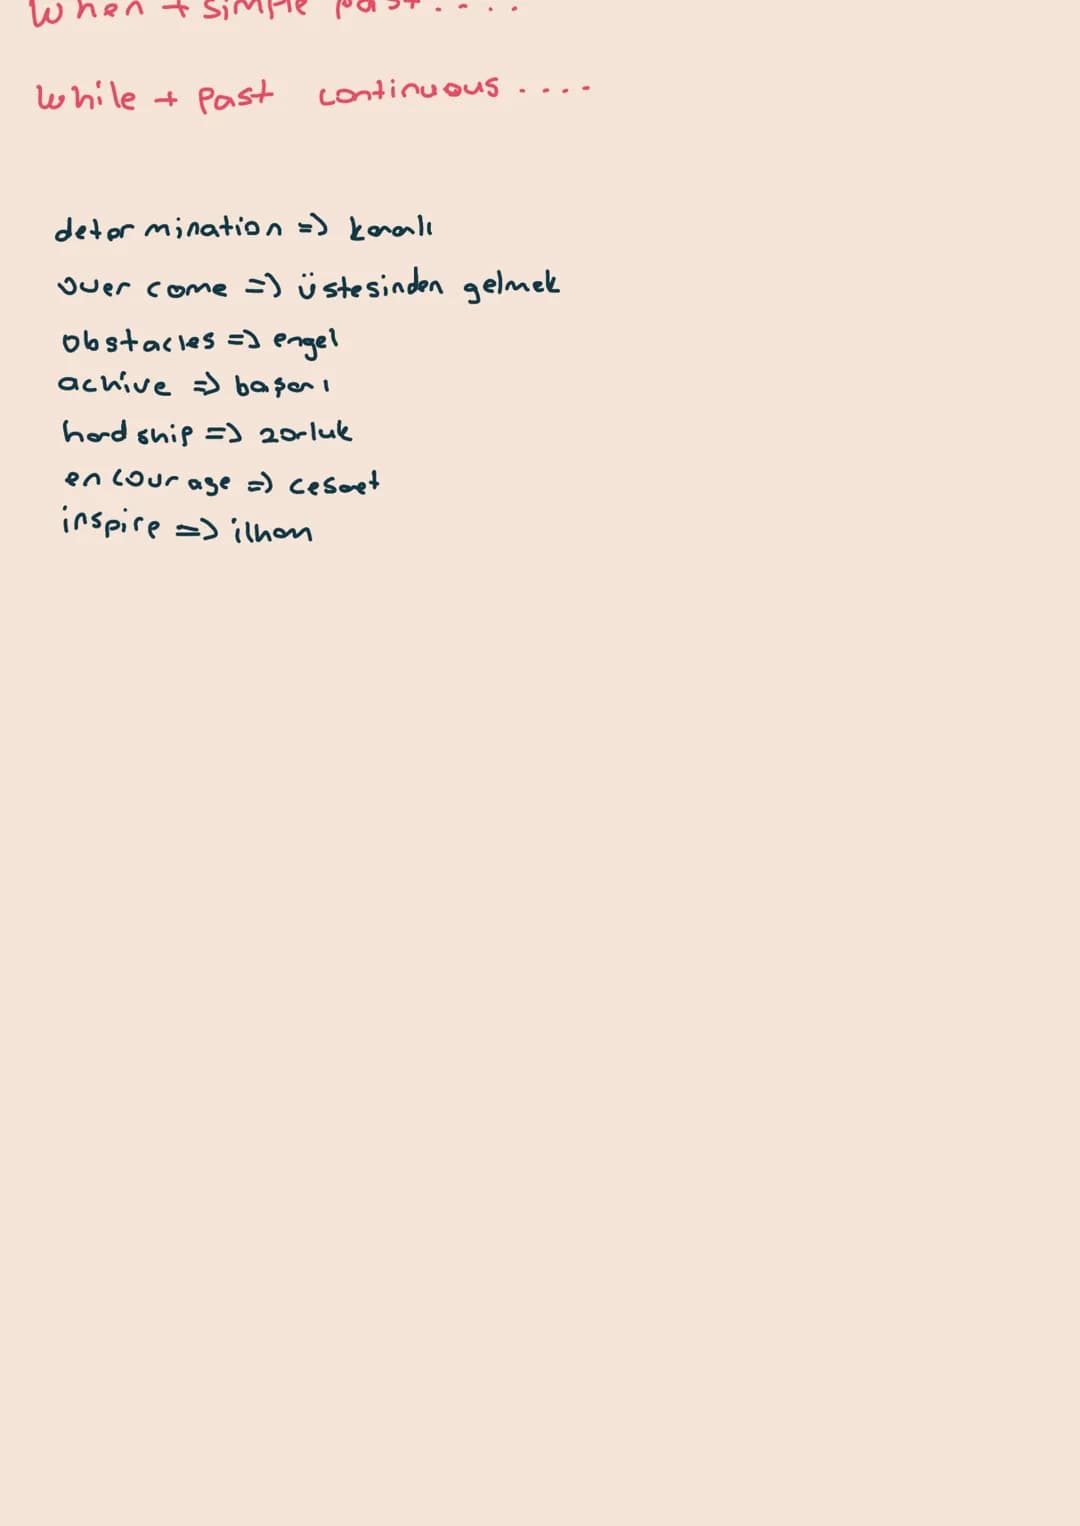 When + simple past....
While + Past continuous ....
determination => kararlı
over come => üstesinden gelmek
obstacles => engel
achive => başarı
hard ship => zorluk
en cour age => cesaret
inspire => ilham